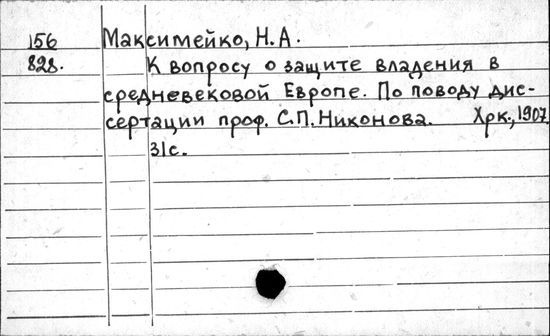 156 Максимейко, Н.А.
828. К вопросу о защите владения в
средневековой Европе. По поводу дис-
сертации проф. С.П. Никонова. Хрк., 1907
31с.